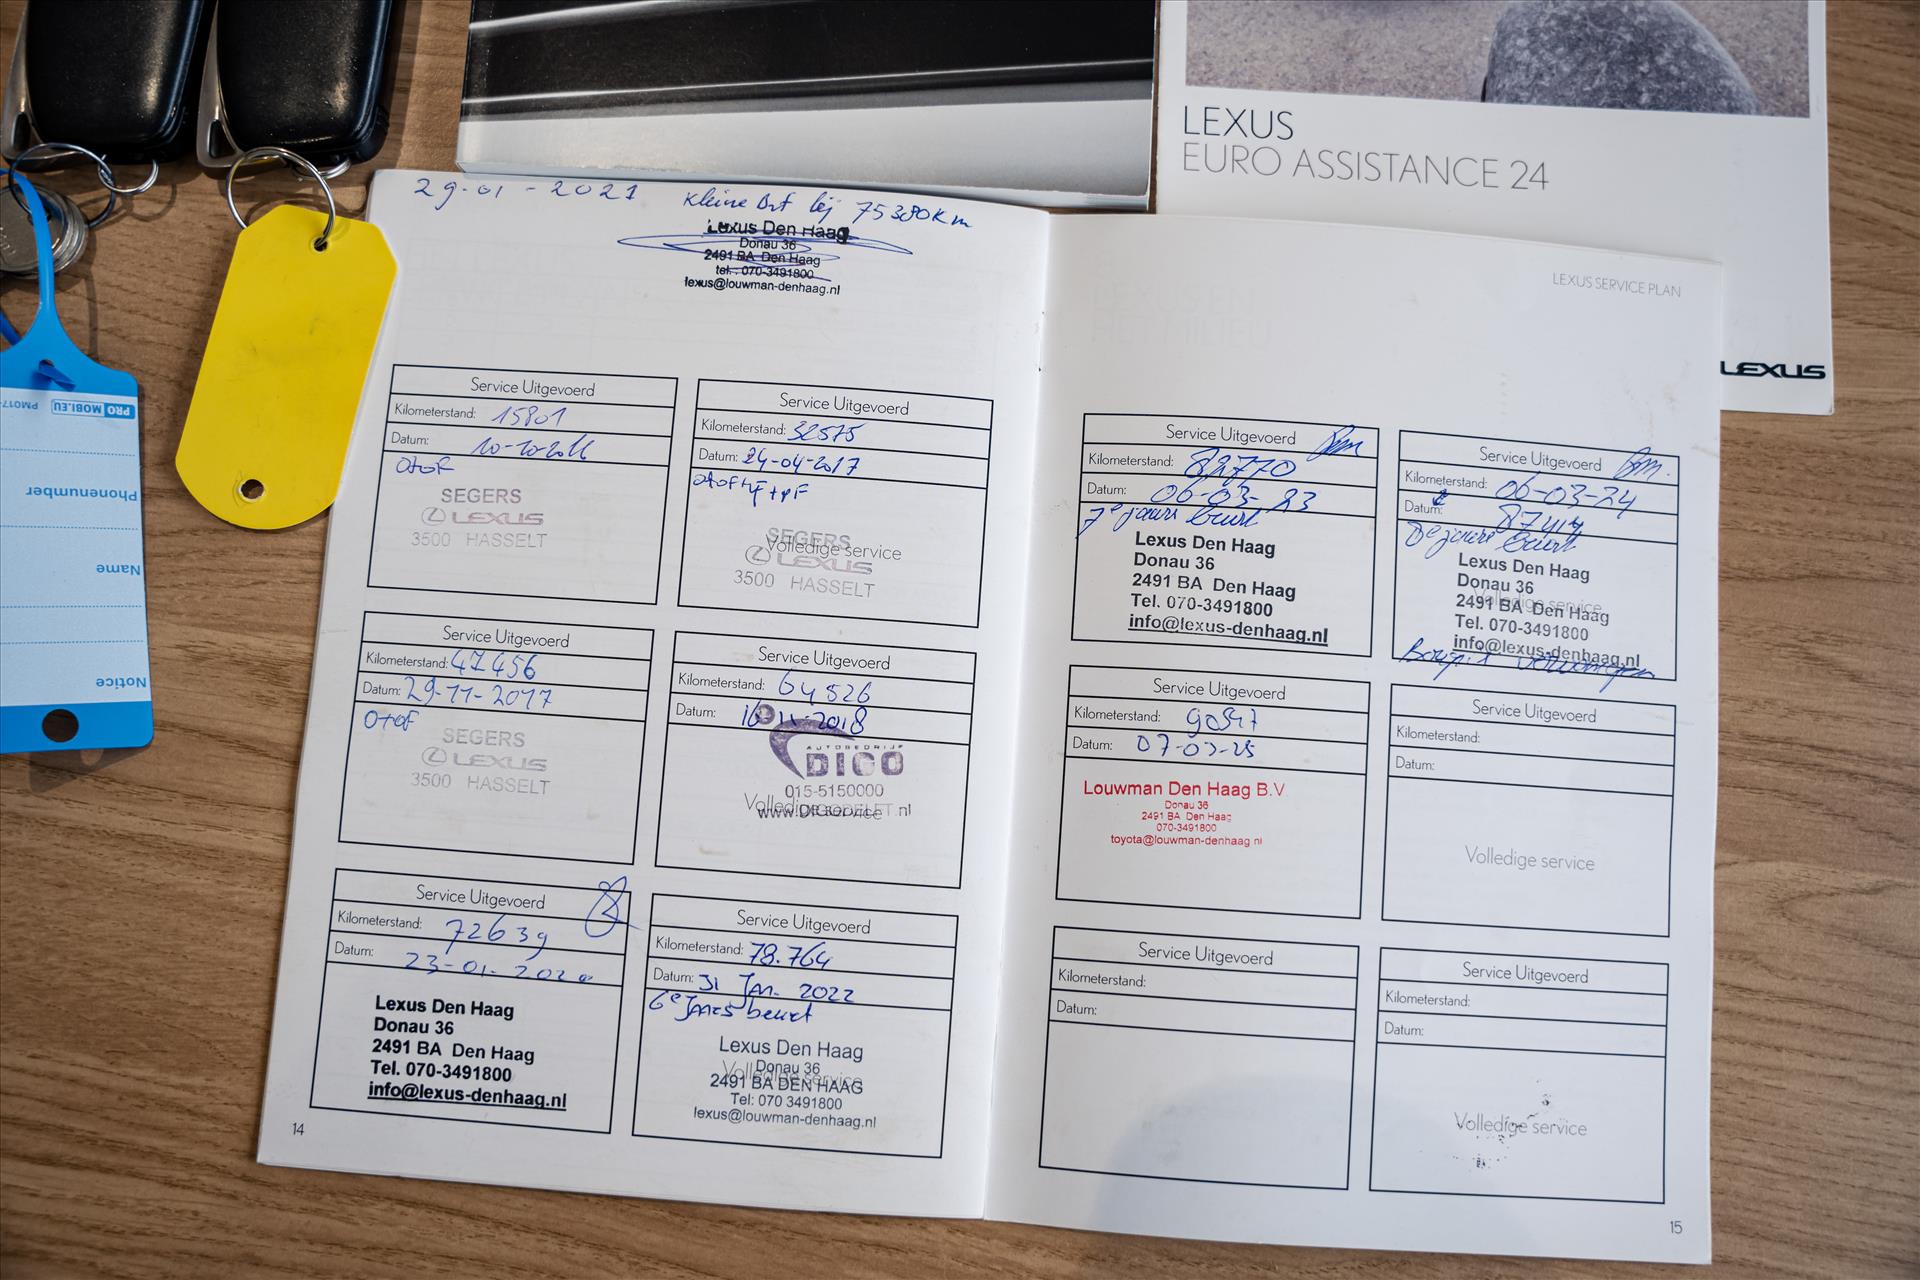 LEXUS
EURO ASSISTANCE 24
LEXUS
PRO MOBI.EU
PM017-
Phonenumber
Name
Notice
29-01-2021 kleine Brt bij 75380Km
Lexus Den Haag
Donau 36
2491 BA Den Haag
tel. : 070-3491800
lexus@louwman-denhaag.nl
Service Uitgevoerd
Kilometerstand: 15801
Datum: 10-10-2016
O+oF
SEGERS
LEXUS
3500 HASSELT
Service Uitgevoerd
Kilometerstand: 32575
Datum: 24-04-2017
SEGERS
Volledige service
LEXUS
3500 HASSELT
Service Uitgevoerd
Kilometerstand: 47456
Datum: 29-11-2017
O+oF
SEGERS
LEXUS
3500 HASSELT
Service Uitgevoerd
Kilometerstand: 64526
Datum: 16-11-2018
AUTOBEDRIJF
DIGO
015-5150000
Volledige service
Service Uitgevoerd
Kilometerstand: 72639
Datum: 23-01-2020
Lexus Den Haag
Donau 36
2491 BA Den Haag
Tel. 070-3491800
info@lexus-denhaag.nl
Service Uitgevoerd
Kilometerstand: 78.764
Datum: 31 Jan. 2022
6e Jaars beurt
Lexus Den Haag
Donau 36
Volledige service
2491 BA DEN HAAG
Tel: 070 3491800
lexus@louwman-denhaag.nl
14
LEXUS SERVICE PLAN
Service Uitgevoerd
Kilometerstand: 82770
Datum: 06-03-23
7e jaars beurt
Lexus Den Haag
Donau 36
2491 BA Den Haag
Tel. 070-3491800
info@lexus-denhaag.nl
Service Uitgevoerd
Kilometerstand: 06-03-24
Datum: 87414
8e jaars beurt
Lexus Den Haag
Donau 36
Volledige service
2491 BA Den Haag
Tel. 070-3491800
info@lexus-denhaag.nl
Service Uitgevoerd
Kilometerstand: 90547
Datum: 07-03-25
Louwman Den Haag B.V
Donau 36
2491 BA Den Haag
070-3491800
toyota@louwman-denhaag.nl
Service Uitgevoerd
Kilometerstand:
Datum:
Volledige service
Service Uitgevoerd
Kilometerstand:
Datum:
Service Uitgevoerd
Kilometerstand:
Datum:
Volledige service
15